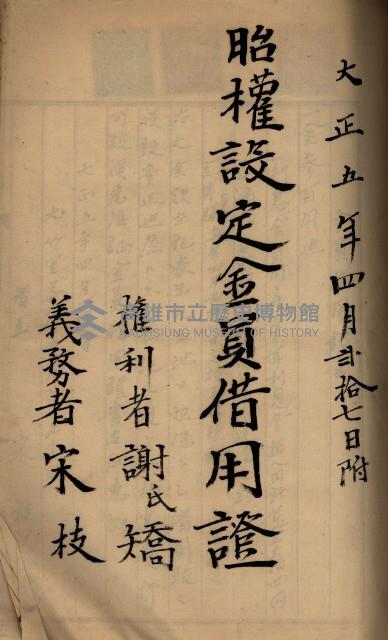 大正五年四月弐拾七日附
胎權設定金員借用證
権利者謝氏矯
義務者宋枝
高雄市立歷史博物館
KAOHSIUNG MUSEUM OF HISTORY